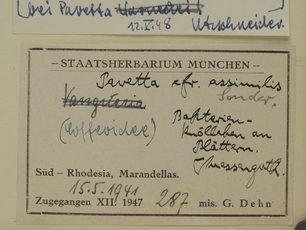 (bei Pavetta
12.X.48 Utschneider.
— STAATSHERBARIUM MÜNCHEN —
Pavetta cfr. assimilis
Vangueria Sonder.
(Coffeoidee) Bakterien-
knöllchen an
Blättern.
Süd – Rhodesia, Marandellas. Suessenguth.
15.5.1941
Zugegangen XII. 1947 287 mis. G. Dehn